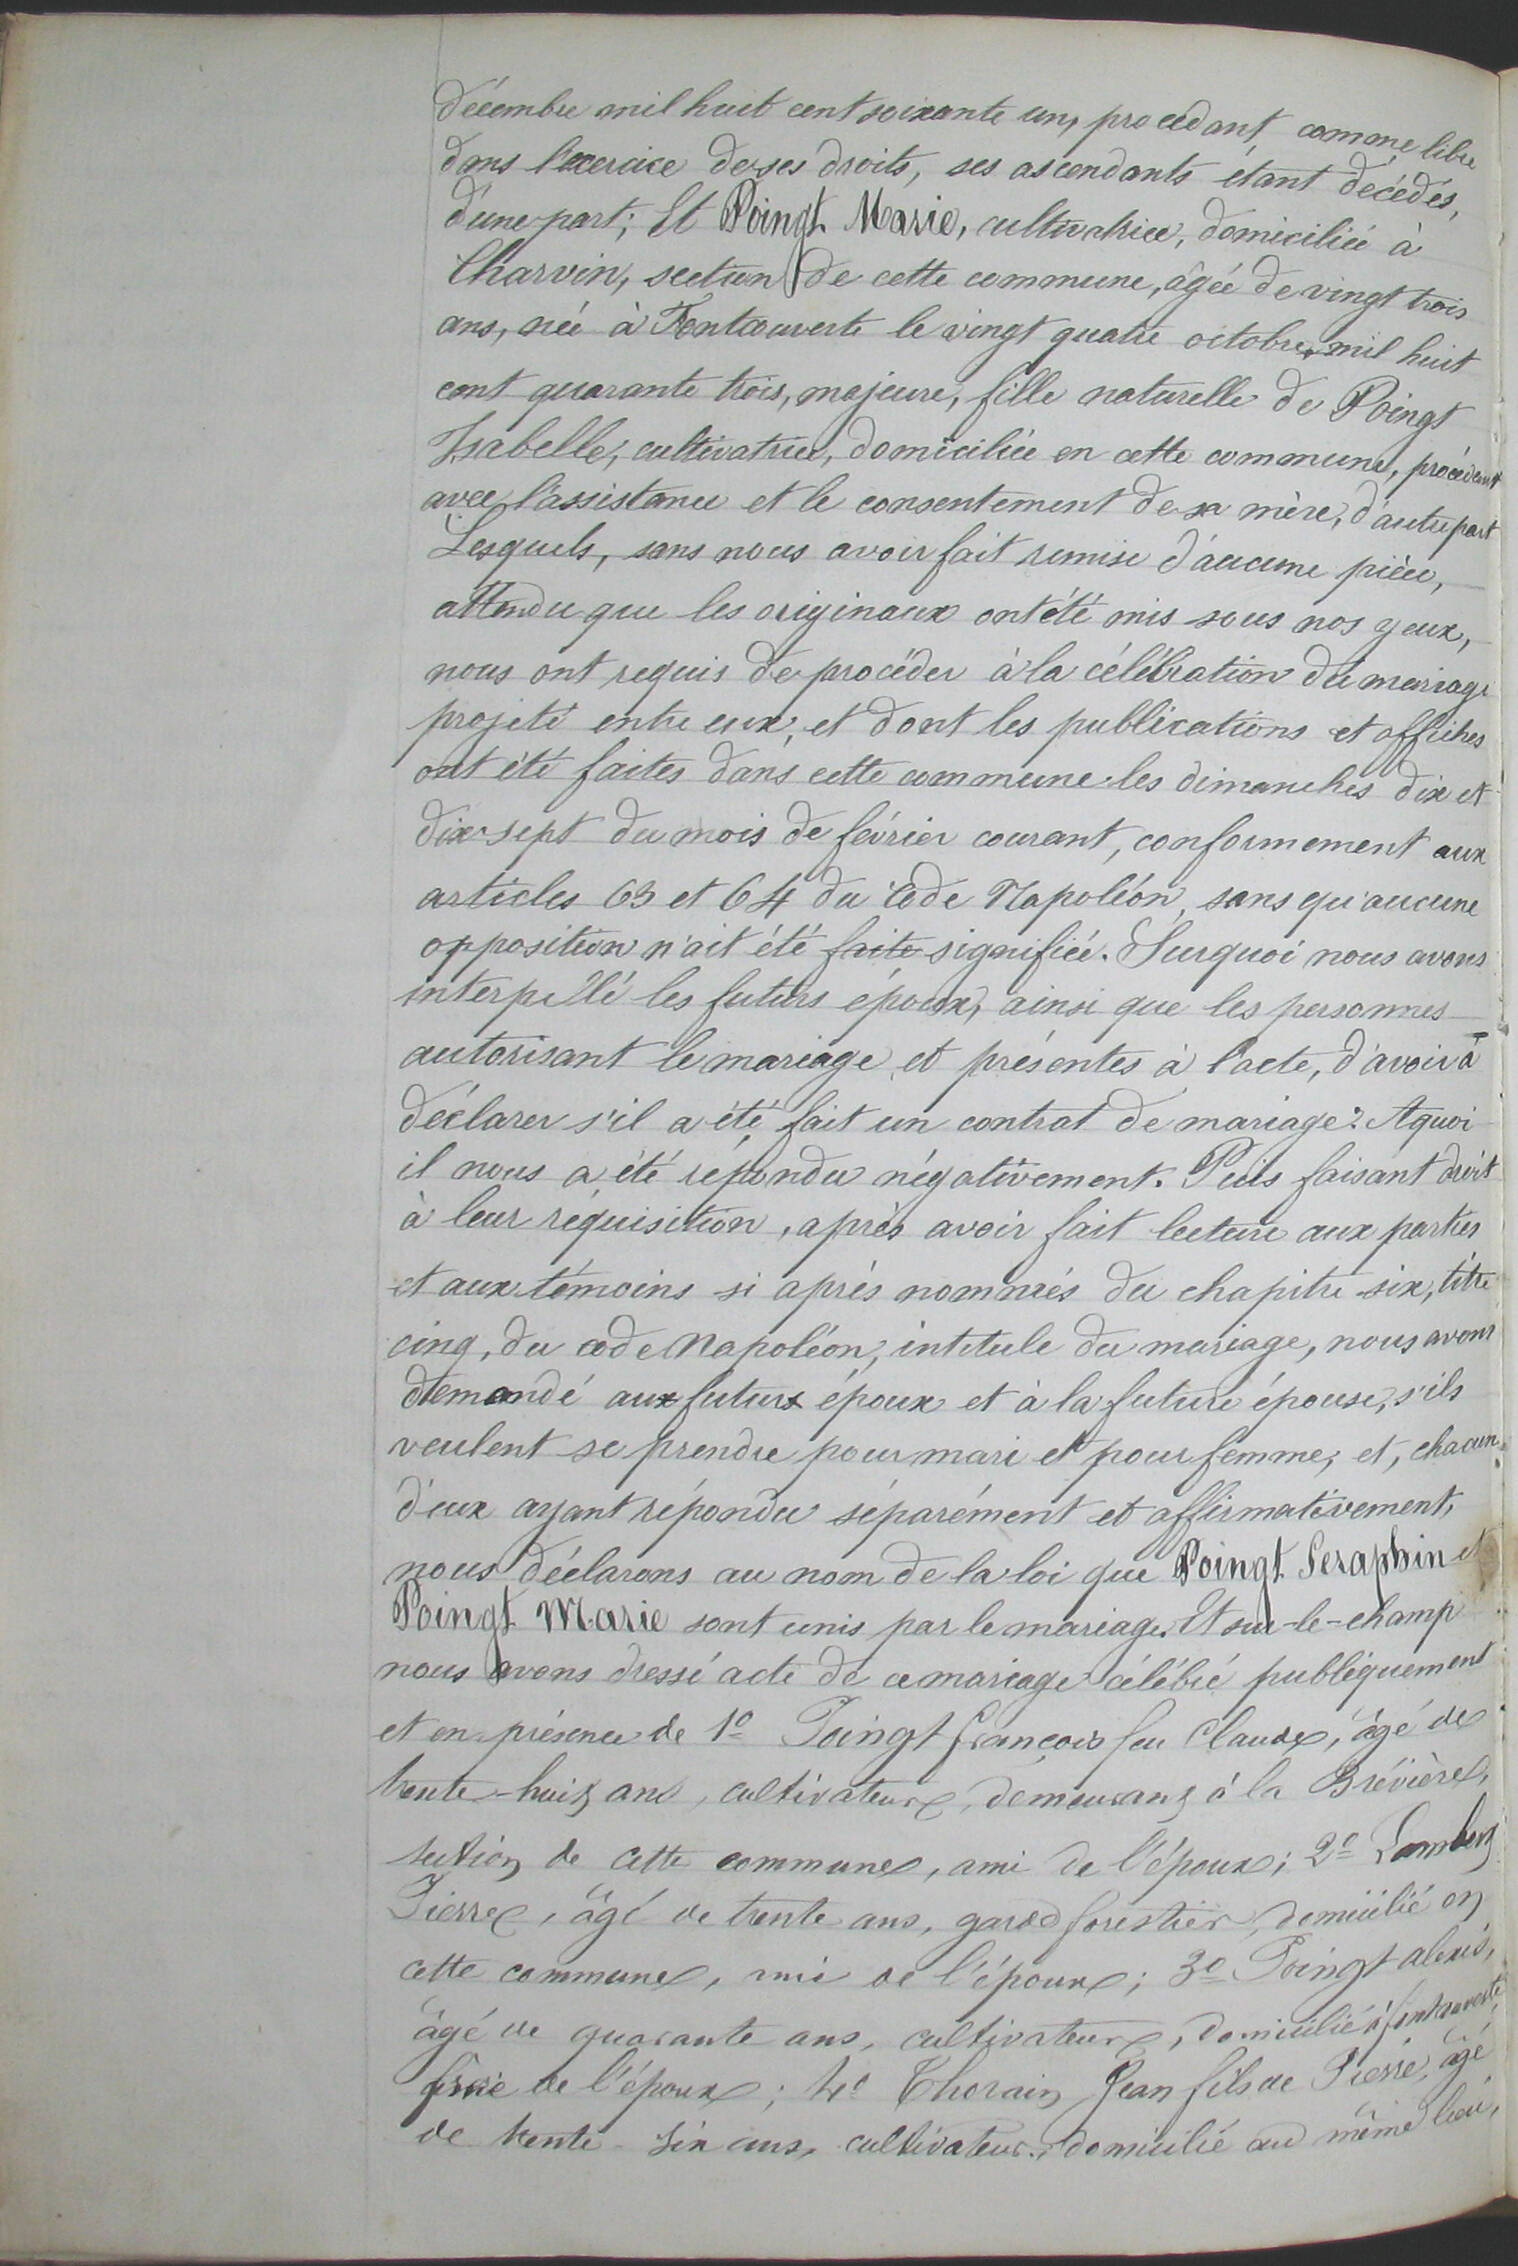 décembre mil huit cent soixante un, procédant, comme libre
dans l'exercice de ses droits, ses ascendants étant décédés,
d'une part; Et Poingt Marie, cultivatrice, domiciliée à
Charvin, section de cette commune, âgée de vingt trois
ans, née à Fontcouverte le vingt quatre octobre mil huit
cent quarante trois, majeure, fille naturelle de Poingt
Isabelle, cultivatrice, domiciliée en cette commune, procédant
avec l'assistance et le consentement de sa mère, d'autre part
Lesquels, sans nous avoir fait remise d'aucune pièce,
attendu que les originaux ont été mis sous nos yeux,
nous ont requis de procéder à la célébration du mariage
projeté entre eux, et dont les publications et affiches
ont été faites dans cette commune les dimanches dix et
dix-sept du mois de février courant, conformement aux
articles 63 et 64 du code Napoléon, sans qu'aucune
opposition n'ait été faite signifiée. Surquoi nous avons
interpellé les futurs époux, ainsi que les personnes
autorisant le mariage et présentes à l'acte, d'avoir à
déclarer s'il a été fait un contrat de mariage? A quoi
il nous a été répondu négativement. Puis faisant droit
à leur réquisition, après avoir fait lecture aux parties
et aux témoins si après nommés du chapitre six, titre
cinq, du code Napoléon, intitule du mariage, nous avons
demandé aux futurs époux et à la future épouse, s'ils
veulent se prendre pour mari et pour femme, et, chacun
d'eux ayant répondu séparément et affirmativement,
nous déclarons au nom de la loi que Poingt Seraphin et
Poingt Marie sont unis par le mariage. Et sur-le-champ
nous avons dressé acte de ce mariage célébré publiquement
et en présence de 1° Poingt françois feu Claude, âgé de
trente-huit ans, cultivateur, demeurant à la Brévière,
section de cette commune, ami de l'époux; 2° Lambert
Pierre, âgé de trente ans, garde forestier, domicilié en
cette commune, ami de l'époux; 3° Poingt alexis,
âgé de quarante ans, cultivateur, domicilié à fontcouverte,
frère de l'époux; 4° Thorain Jean fils de Pierre, âgé
de trente-six ans, cultivateur, domicilié au même lieu,